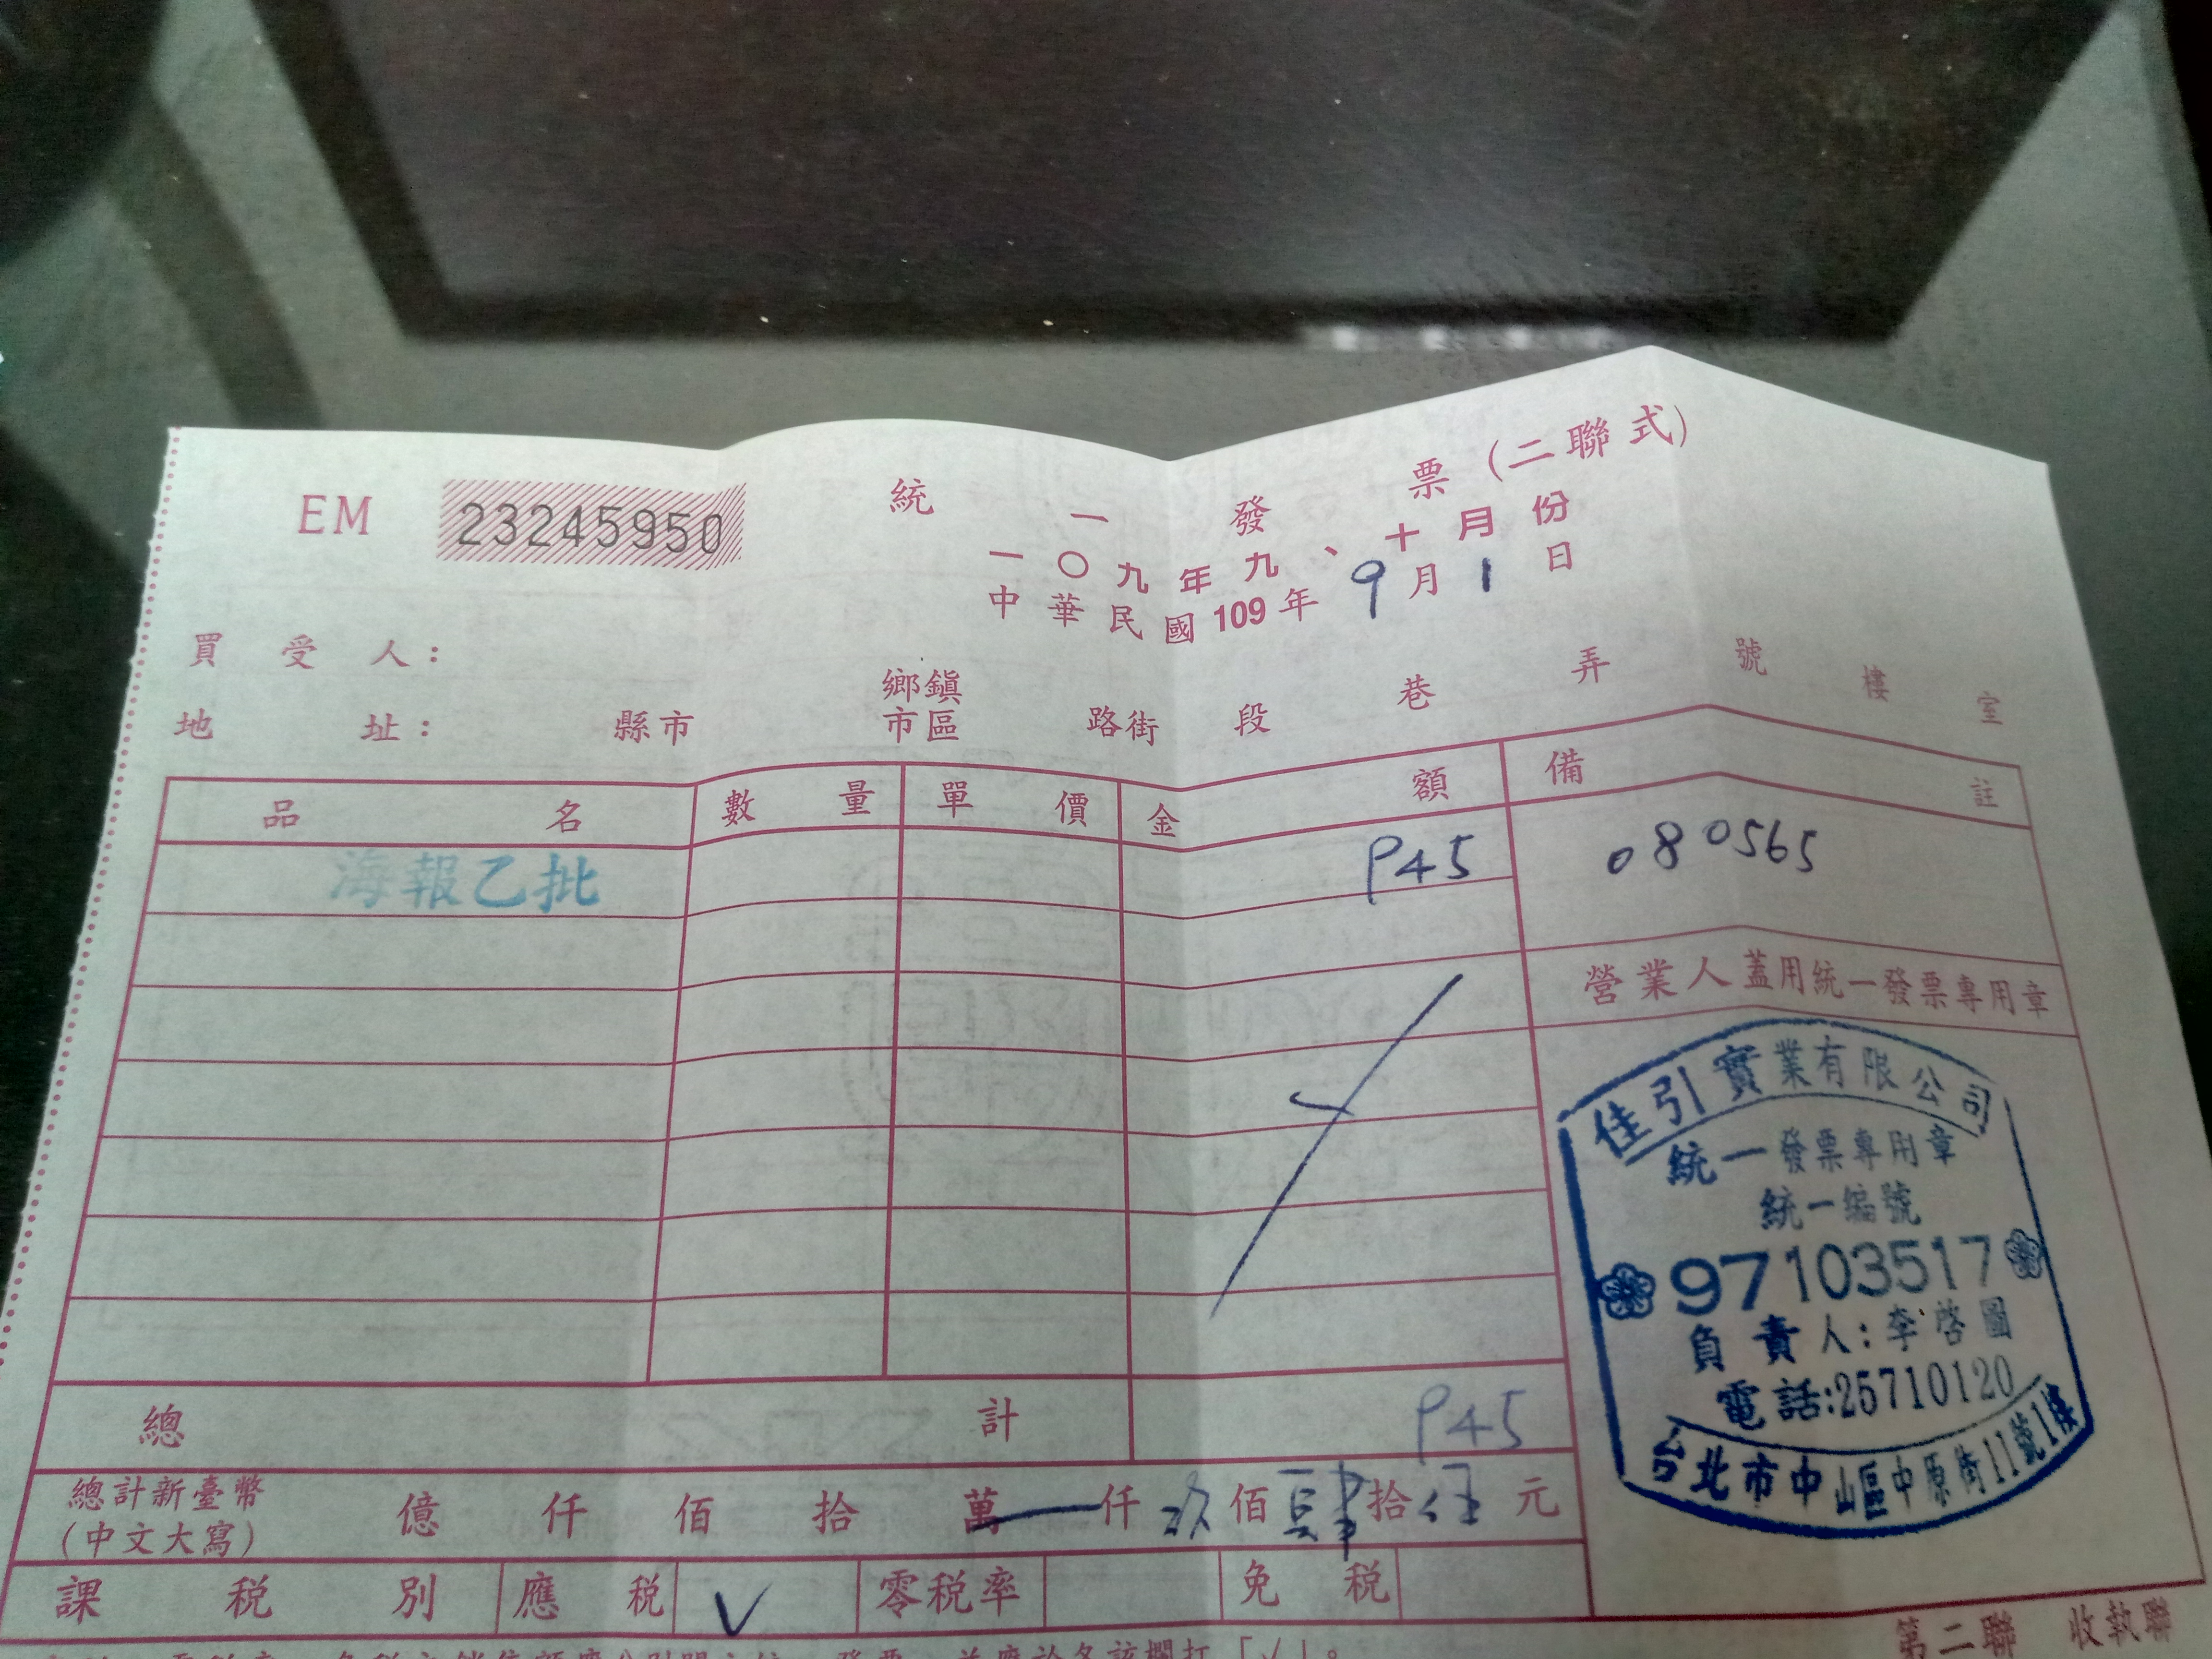 EM 23245950
統一發票(二聯式)
一〇九年九、十月份
中華民國109年9月1日
買受人:
地址: 縣市 鄉鎮市區 路街 段 巷 弄 號 樓 室
品名 數量 單價 金額 備註
海報乙批 945 080565
營業人蓋用統一發票專用章
佳引實業有限公司
統一發票專用章
統一編號
97103517
負責人:李啓圖
電話:25710120
台北市中山區中原街11號1樓
總計 945
總計新臺幣
(中文大寫)
億 仟 佰 拾 萬 仟 玖 佰 肆 拾 伍 元
課稅別 應稅 V 零稅率 免稅
第二聯 收執聯